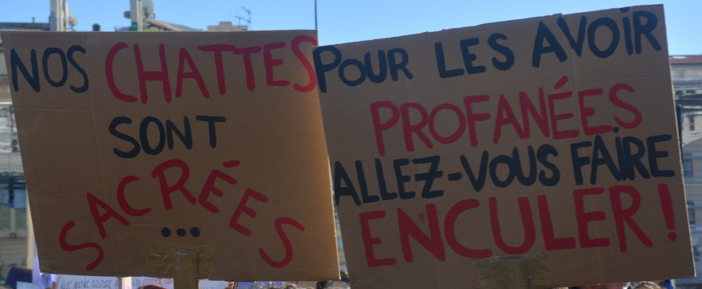 NOS CHATTES
SONT
SACRÉES
...
POUR LES AVOIR
PROFANÉES
ALLEZ-VOUS FAIRE
ENCULER !